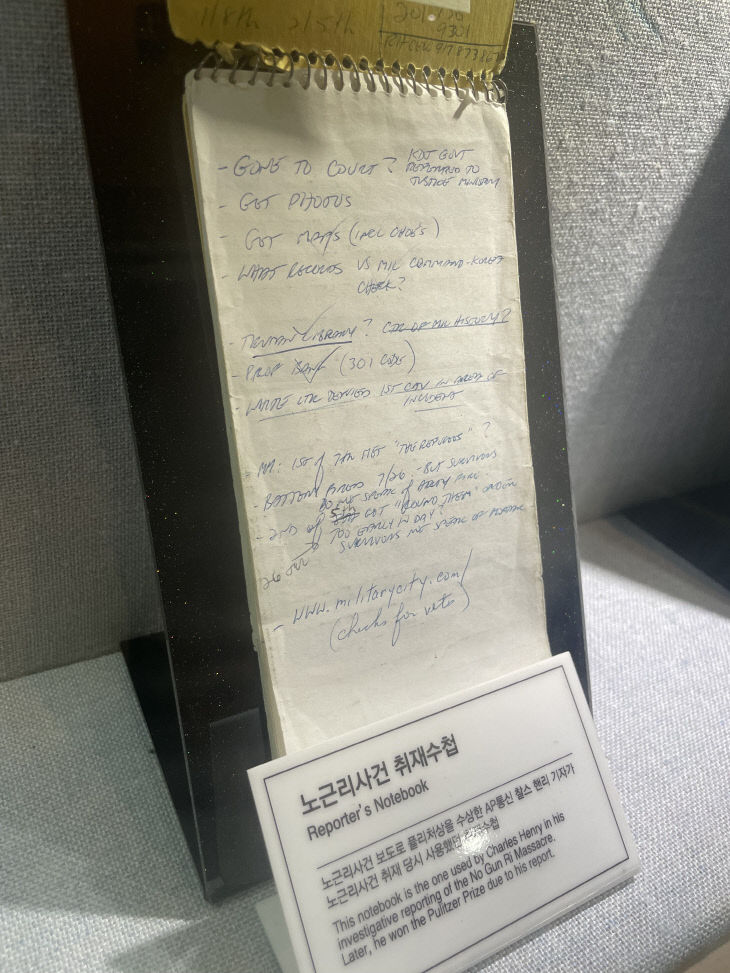 11/8th 2/5th
9301
- GONE TO COURT? KDJ GOVT
TO
JUSTICE MINISTRY
- GET PHOTOS
- GET MAPS (INCL CHOE'S)
- WHAT RECORDS VS MIL COMMAND-KOREA
CHECK?
- TRUMAN LIBRARY? CTR OF MIL HISTORY?
- PROP BANK (301 CODE)
- LTR DENIED 1ST CAV IN AREA OF
INCIDENT
1ST of 7TH MET "THE REFUGEES"?
7/26 - BUT SURVIVORS
DO NOT SPEAK of
- 2ND of 5th GOT "ROUND THEM" ORDER
TOO EARLY IN DAY?
SURVIVORS NOT SPEAK OF MORTAR
26
- www.militarycity.com/
(checks for vets)
노근리사건 취재수첩
Reporter's Notebook
노근리사건 보도로 퓰리처상을 수상한 AP통신 찰스 핸리 기자가
노근리사건 취재 당시 사용했던 취재수첩
This notebook is the one used by Charles Henry in his
investigative reporting of the No Gun Ri Massacre.
Later, he won the Pulitzer Prize due to his report.